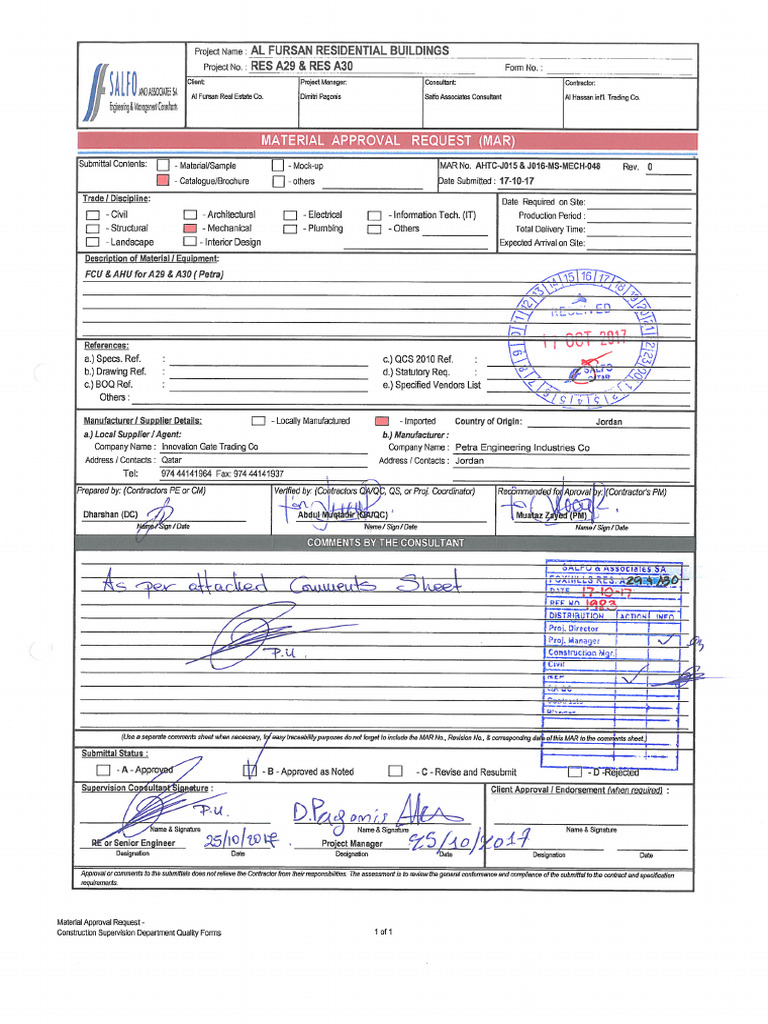 SALFO AND ASSOCIATES SA
Engineering & Management Consultants
Project Name : AL FURSAN RESIDENTIAL BUILDINGS
Project No. : RES A29 & RES A30 Form No. :
Client: Project Manager: Consultant: Contractor:
Al Fursan Real Estate Co. Dimitri Pagonis Salfo Associates Consultant Al Hassan int'l. Trading Co.
MATERIAL APPROVAL REQUEST (MAR)
Submittal Contents: - Material/Sample - Mock-up MAR No. AHTC-J015 & J016-MS-MECH-048 Rev. 0
- Catalogue/Brochure - others Date Submitted : 17-10-17
Trade / Discipline: Date Required on Site:
- Civil - Architectural - Electrical - Information Tech. (IT) Production Period :
- Structural - Mechanical - Plumbing - Others Total Delivery Time:
- Landscape - Interior Design Expected Arrival on Site:
Description of Material / Equipment:
FCU & AHU for A29 & A30 ( Petra)
RECEIVED
17 OCT 2017
SALFO
QATAR
References:
a.) Specs. Ref. : c.) QCS 2010 Ref. :
b.) Drawing Ref. : d.) Statutory Req. :
c.) BOQ Ref. : e.) Specified Vendors List
Others :
Manufacturer / Supplier Details: - Locally Manufactured - Imported Country of Origin: Jordan
a.) Local Supplier / Agent: b.) Manufacturer :
Company Name : Innovation Gate Trading Co Company Name : Petra Engineering Industries Co
Address / Contacts : Qatar Address / Contacts : Jordan
Tel: 974 44141964 Fax: 974 44141937
Prepared by: (Contractors PE or CM) Verified by: (Contractors QA/QC, QS, or Proj. Coordinator) Recommended for Aproval by: (Contractor's PM)
Dharshan (DC) Abdul Muqtadir (QA/QC) Muataz Zayed (PM)
Name / Sign / Date Name / Sign / Date Name / Sign / Date
COMMENTS BY THE CONSULTANT
As per attached Comments Sheet
P.U.
SALFO & Associates SA
FOXHILLS RES. A29 & A30
DATE 17-10-17
REF NO. 1983
DISTRIBUTION ACTION INFO
Proj. Director
Proj. Manager
Construction Mgr.
Civil
MEP
QA QC
Contracts
(Use a separate comments sheet when necessary, for easy traceability purposes do not forget to include the MAR No., Revision No., & corresponding date of this MAR to the comments sheet.)
Submittal Status :
- A - Approved - B - Approved as Noted - C - Revise and Resubmit - D - Rejected
Supervision Consultant Signature : Client Approval / Endorsement (when required) :
P.U. D.Pagonis
Name & Signature Name & Signature Name & Signature
RE or Senior Engineer 25/10/2017 Project Manager 25/10/2017
Designation Date Designation Date Designation Date
Approval or comments to the submittals does not relieve the Contractor from their responsibilities. The assessment is to review the general conformance and compliance of the submittal to the contract and specification requirements.
Material Approval Request -
Construction Supervision Department Quality Forms 1 of 1